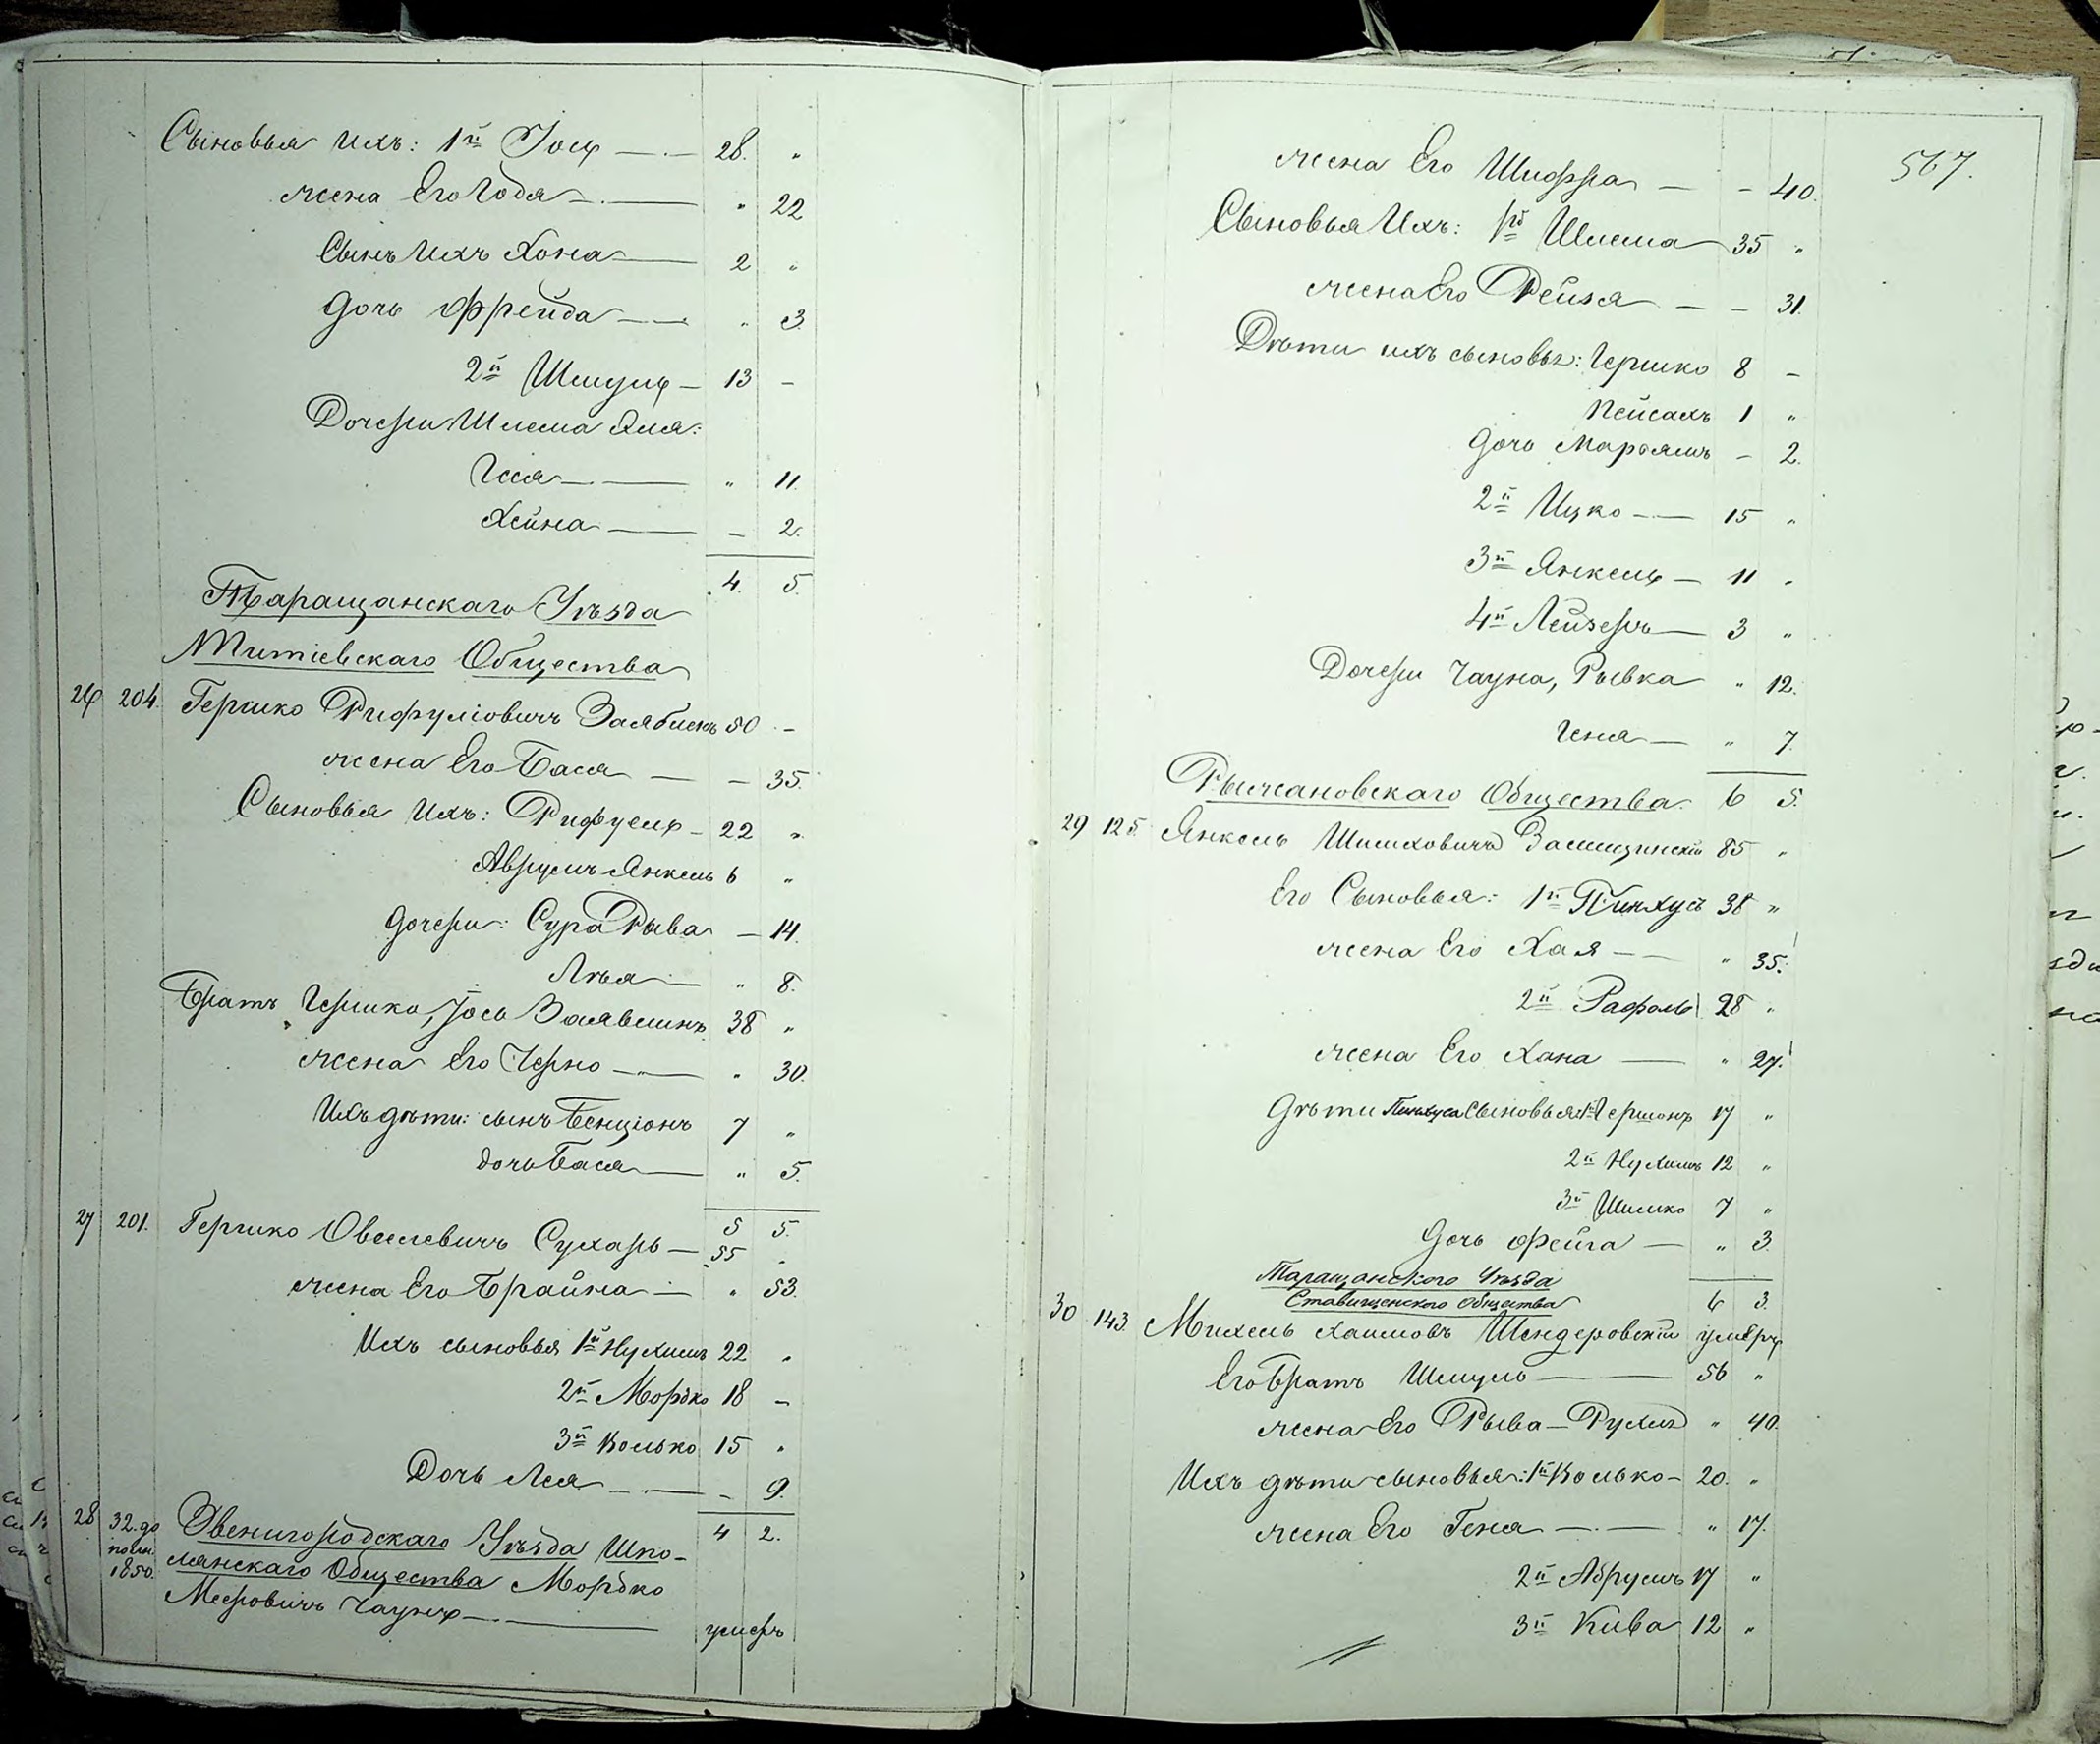 Сыновья ихъ: 1й Іось — 28. "
жена Его Годя — " 22
Сынъ Ихъ Хона — 2 "
дочь Фрейда — " 3
2й Шмуль — 13 –
Дочери Шлема Аля:
Геся — " 11.
Хейна — – 2.
4. 5.
Таращанскаго Уѣзда
Тетіевскаго Общества
26 204. Гершко Рифуліовичъ 50 –
жена Его Бася — – 35.
Сыновья Ихъ: Рифуель – 22 "
Аврумъ Янкель 6 "
дочери: Сура Рыва – 14.
Лѣя — " 8.
Братъ Гершка, Іось 38 "
жена Его Черно — " 30.
Ихъ дѣти: сынъ Бенціонъ 7 "
дочь Бася — " 5.
5 5.
27 201. Гершко Овсеевичъ Сухарь — 55 "
жена Его Брайна — " 53.
Ихъ сыновья 1й Нухимъ 22 "
2й Мордко 18 –
3й Волько 15 "
Дочь Лея — – 9.
4 2.
28 32. до Звенигородскаго Уѣзда Шпо-
полн. лянскаго Общества Мордко
1850. Мееровичъ Гаунъ — умеръ
567.
жена Его Шифра — – 40.
Сыновья Ихъ: 1й Шлема 35 "
жена Его Рейзя — – 31.
Дѣти ихъ сыновья: Гершко 8 –
Пейсахъ 1 "
дочь Марьямъ – 2.
2й Ицко — 15 "
3й Янкель — 11 "
4й Лейзеръ — 3 "
Дочери Гауна, Рывка " 12.
Геня — " 7.
6 5.
Рыжановскаго Общества.
29 125. Янкель 85 "
Его Сыновья: 1й Пинхусъ 38 "
жена Его Хая — " 35.
2й Рафоль 28 "
жена Его Хана — " 27.
Дѣти Пинхуса Сыновья: 1й Гершонъ 17 "
2й Нухимъ 12 "
3й Шимко 7 "
дочь Фейга — " 3.
6 3.
Таращанского Уѣзда
Ставищенского Общества
30 143. Михель Хаимовъ Шендеровскій умеръ
Его Братъ Шмуль — 56 "
жена Его Рыва – Рухля " 40.
Ихъ дѣти сыновья: 1й Волько – 20. "
жена Его Геня — " 17.
2й Абрумъ 17 "
3й Кива 12 "